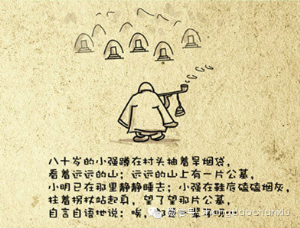 八十岁的小强蹲在村头抽着旱烟袋，
看着远远的山；远远的山上有一片公墓，
小明已在那里静静睡去；小强在鞋底磕磕烟灰，
拄着拐杖站起身，望了望那片公墓，
自言自语地说：唉，